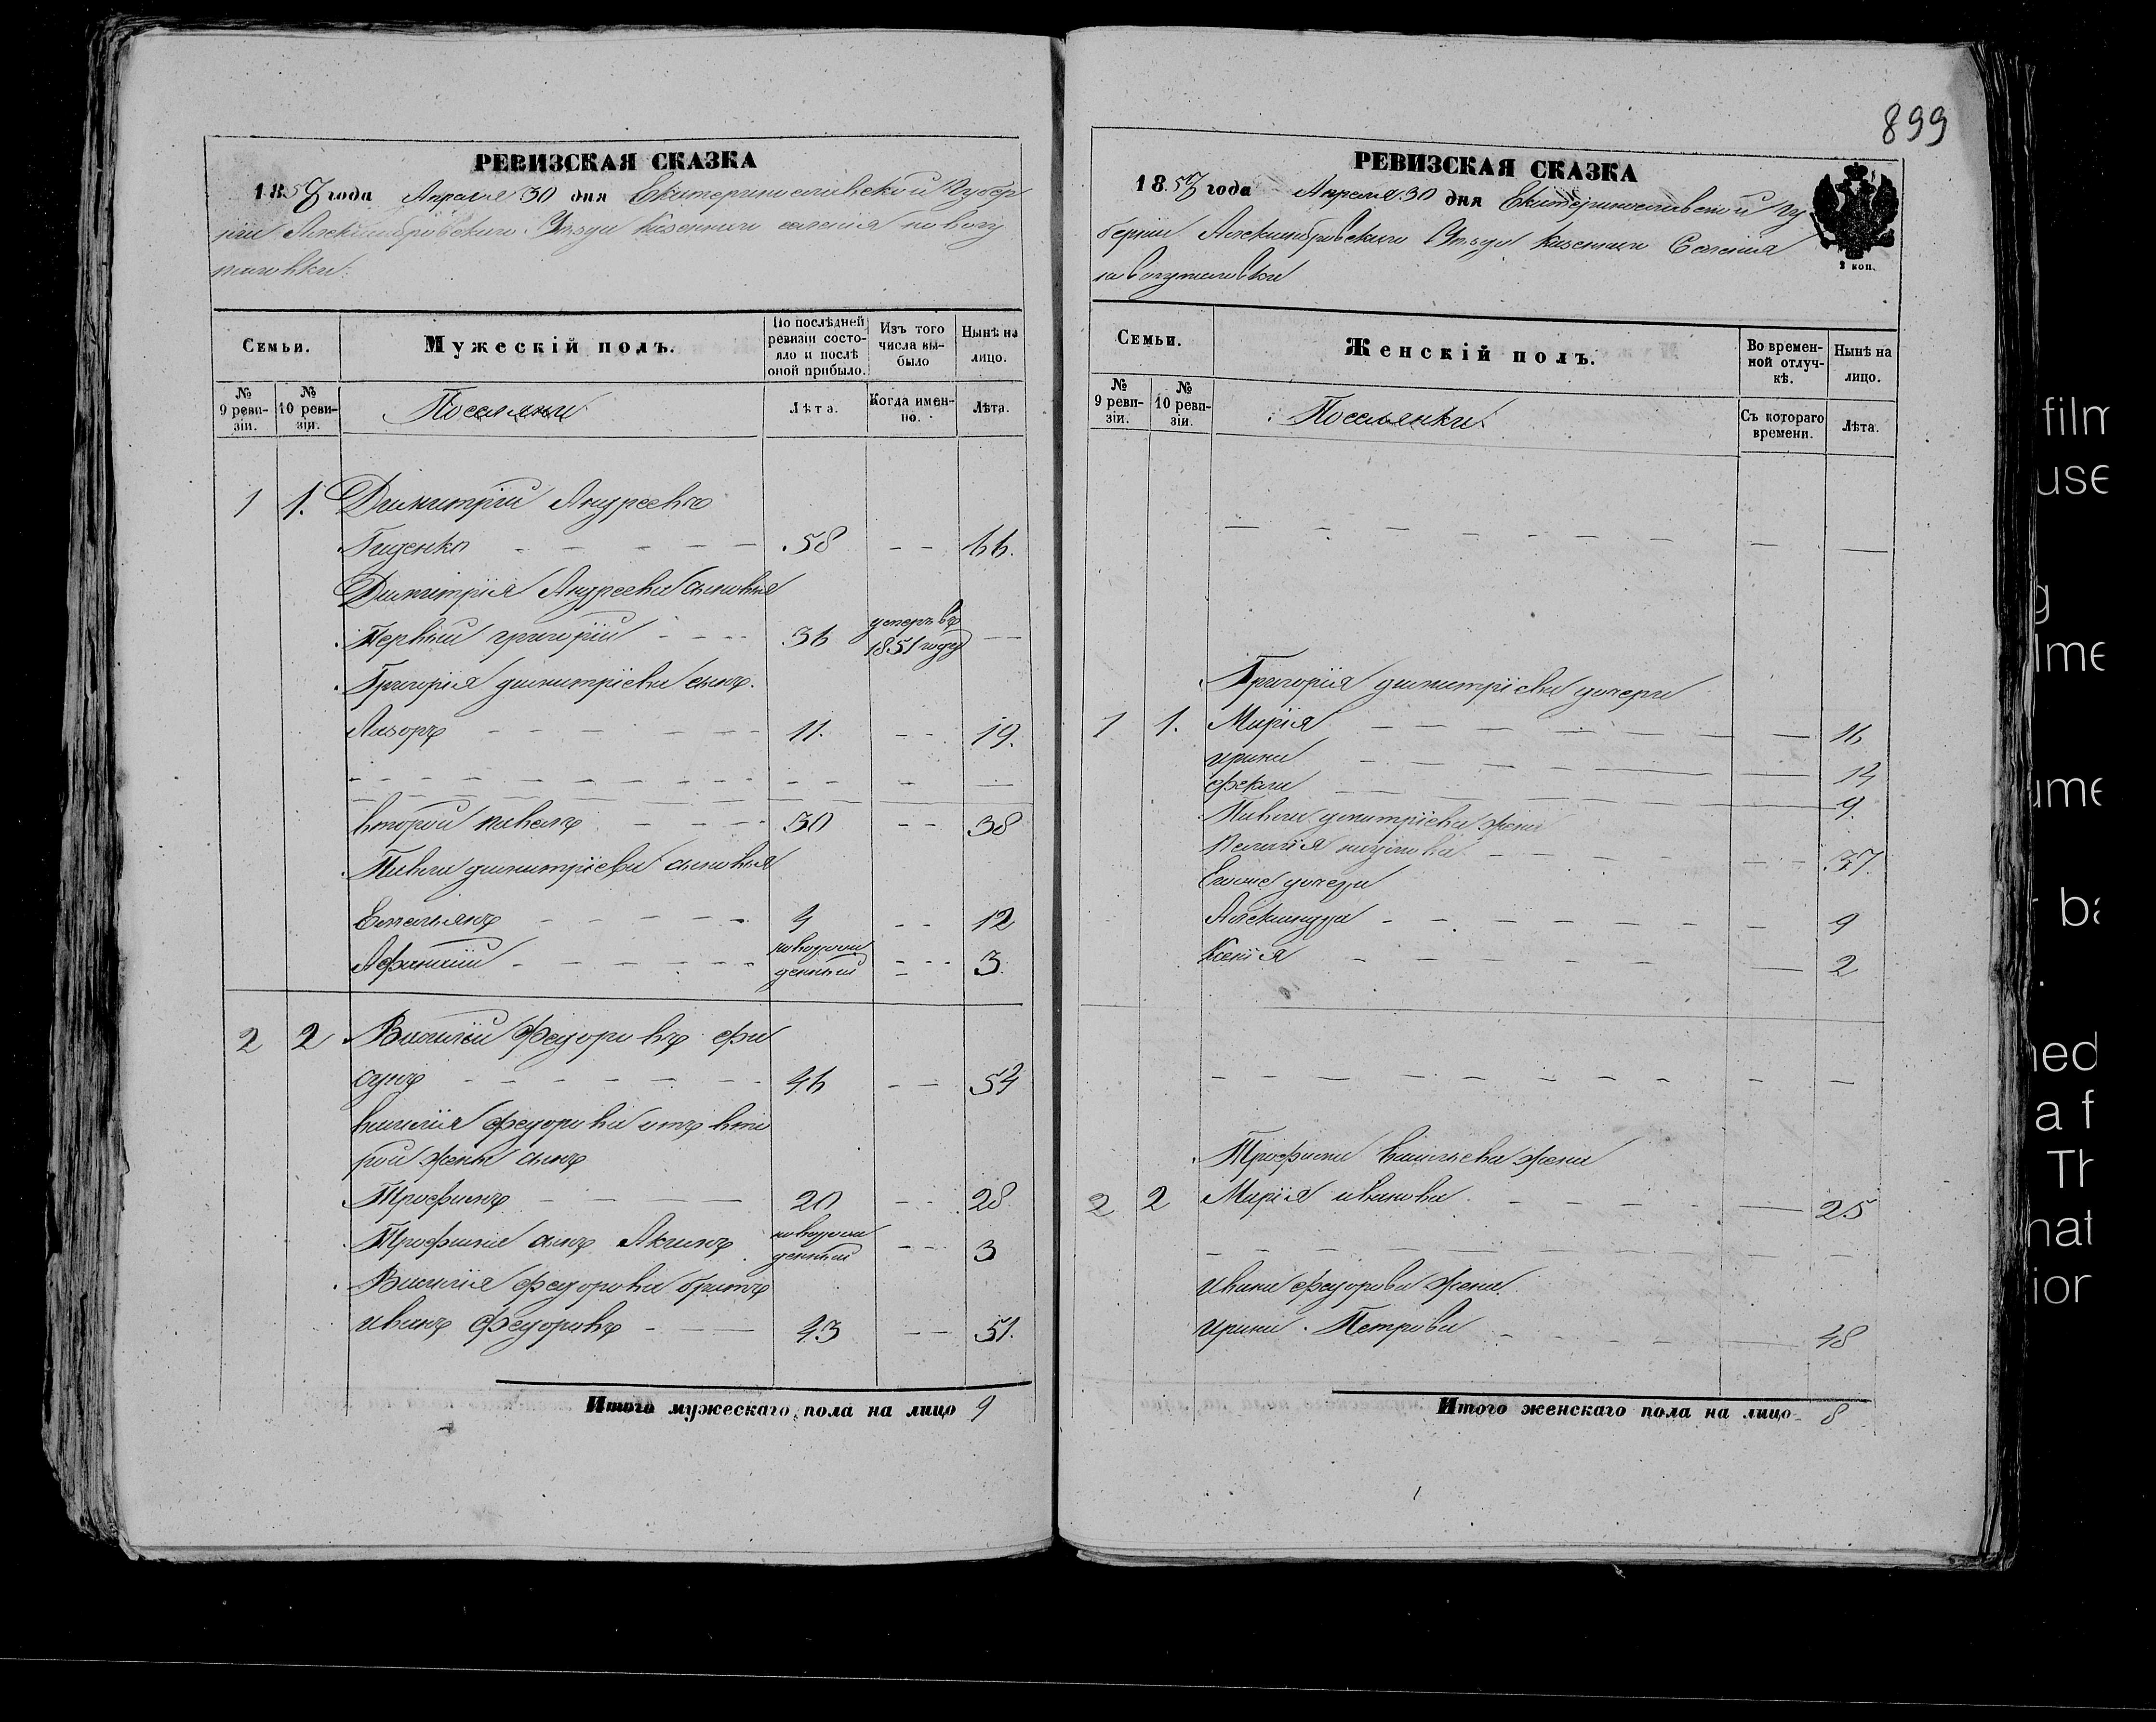 899
РЕВИЗСКАЯ СКАЗКА
1857 года Апреля 30 дня Екатеринославской Губер
ніи Александровскаго Уѣзда Казеннаго селенія новогу
паловки
Семьи.
Мужескій полъ.
По послѣдней ревизіи состояло и послѣ оной прибыло.
Изъ того числа выбыло
Нынѣ на лицо.
№ 9 ревизіи.
№ 10 ревизіи.
Поселяне
Лѣта.
Когда именно.
Лѣта.
1 1. Димитрій Андреевъ
58 66.
Димитрія Андреева сыновья
Первый григорій 36 умеръ въ 1851 году
Григорія димитріева сынъ
Лазорь 11. 19.
второй павелъ 30 38
Павла димитріева сыновья
Емельянъ 4 12
Афанасій новорожденный 3
2 2 Василій Федоровъ фи
сунъ 46 54
василія федорова отъ вто
рой жены сынъ
Трофимъ 20 28
Трофима сынъ Акимъ новорожденный 3
Василія федорова братъ
иванъ федоровъ 43 51.
Итого мужескаго пола на лицо 9
РЕВИЗСКАЯ СКАЗКА
1857 года Апреля 30 дня Екатеринославской Гу
берніи Александровскаго Уѣзда Казеннаго Селенія
новогупаловки
2 коп.
Семьи.
Женскій полъ.
Во временной отлучкѣ.
Нынѣ на лицо.
№ 9 ревизіи.
№ 10 ревизіи.
Поселянки
Съ котораго времени.
Лѣта.
Григорія димитріева дочери
1 1. Марія 16
ирина 14
фекла 9
Павла димитріева жена
37.
Егоже дочери
Александра 9
Ксенія 2
Трофима васильева жена
2 2 Марія иванова 25
ивана федорова жена
ирина Петрова 48
Итого женскаго пола на лицо 8